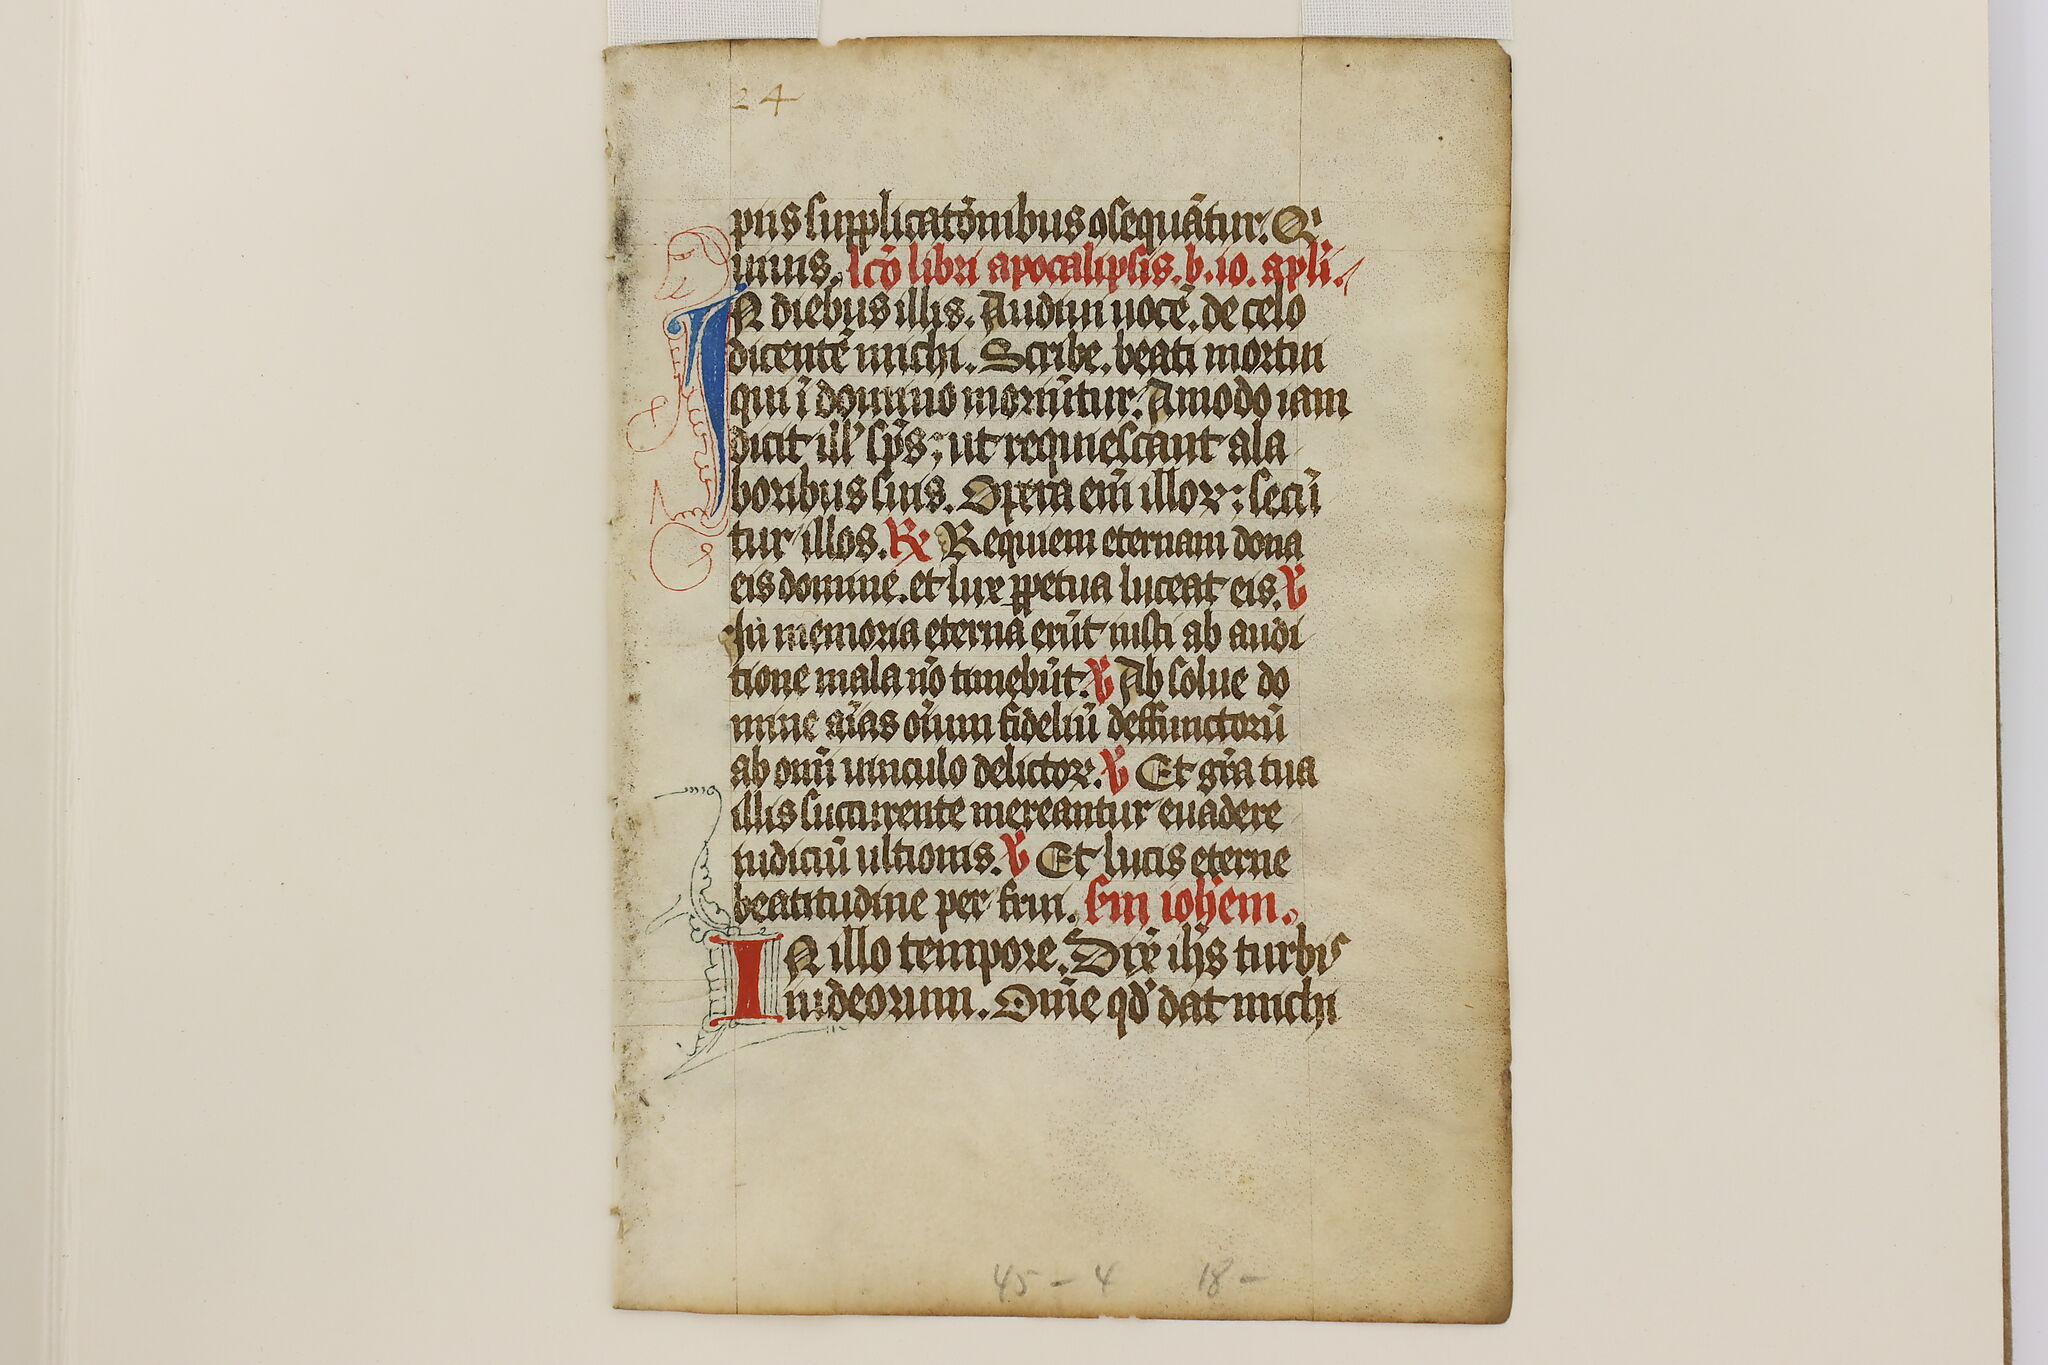 24
pijs supplicatōnibus ꝯsequāt̄ur. Q'
uiuis. lc̄o libri apocalipsis. b. io. apl̄i.
IN diebus illis. Audiui uocē. de celo
dicentē michi. Scribe. beati mortui
qui ī domino moriūtur. Amodo iam
dicit ill' sp̄s; ut requiescant a la
boribus suis. Opera em̄ illoꝝ: secū
tur illos. ℟ Requiem eternam dona
eis domine. et lux ꝑpetua luceat eis. ℣
In memoria eterna erūt iusti ab audi
tione mala nō timebūt. ℣ Absolue do
mine aīas oīum fideliū deffunctorū
ab omī uinculo delictoꝝ. ℣ Et gr̄a tua
illis succurente mereantur euadere
iudiciū ultionis. ℣ Et lucis eterne
beatitudine per frui. Sm ioh̄em.
IN illo tempore. Dix̄ ih̄s turbis
iudeorum. Om̄e qd̓ dat michi
45 - 4 18 -